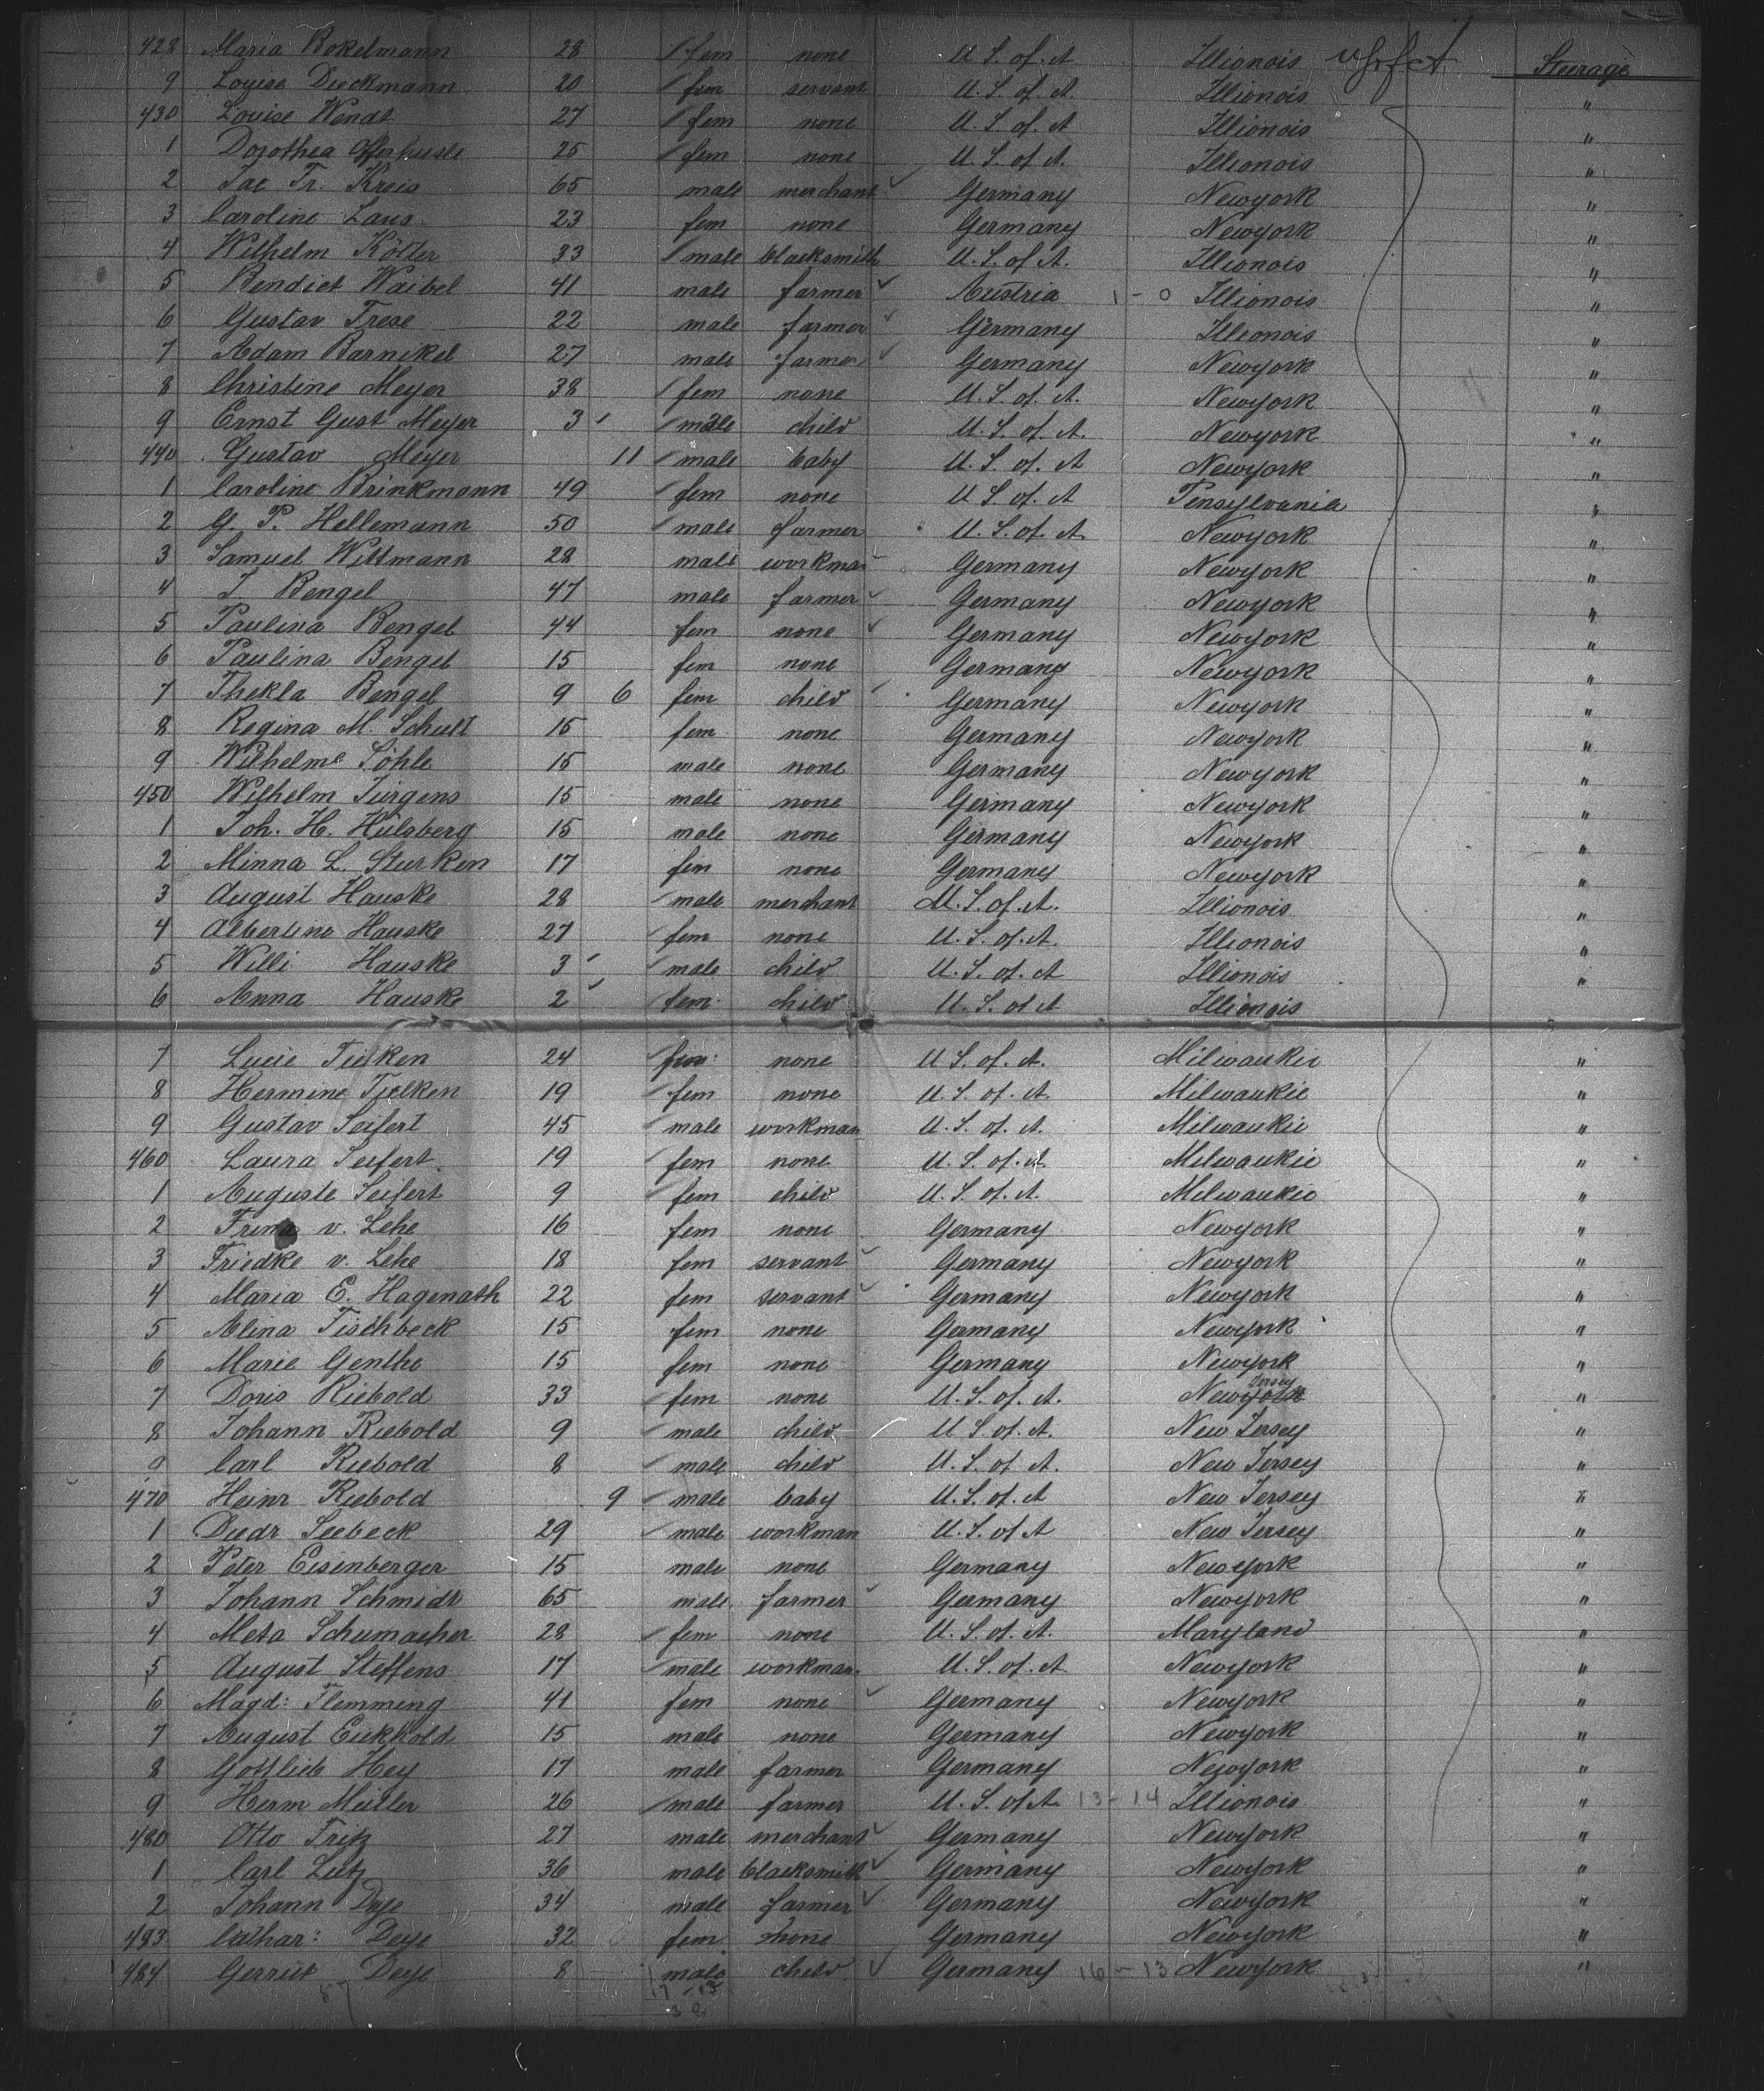 428 Maria Bokelmann 28 fem none U.S. of. A Illionois Steerage
9 Louise Dieckmann 20 fem servant U.S. of A. Illionois "
430 Louise Wendt 27 fem none U.S. of. A Illionois "
1 Dorothea 25 fem none U.S. of A. Illionois "
2 Jac Fr. Kreis 65 male merchant Germany Newyork "
3 Caroline Laus 23 fem none Germany Newyork "
4 Wilhelm Kötter 33 male blacksmith U.S. of A. Illionois "
5 Bendict Waibel 41 male farmer Austria 1-0 Illionois "
6 Gustav Trese 22 male farmer Germany Illionois "
7 Adam Barnikel 27 male farmer Germany Newyork "
8 Christine Meyer 38 fem none U.S. of. A. Newyork "
9 Ernst Gust Meyer 3 male child U.S. of. A. Newyork "
440 Gustav Meyer 11 male baby U.S. of. A Newyork "
1 Caroline Brinkmann 49 fem none U.S. of. A Pensylvania "
2 G. P. Hellemann 50 male farmer U.S. of. A. Newyork "
3 Samuel Wittmann 28 male workman Germany Newyork "
4 J. Bengel 47 male farmer Germany Newyork "
5 Paulina Bengel 44 fem none Germany Newyork "
6 Paulina Bengel 15 fem none Germany Newyork "
7 Thekla Bengel 9 6 fem child Germany Newyork "
8 Regina M. Schult 15 fem none Germany Newyork "
9 Wilhelme Söhle 15 male none Germany Newyork "
450 Wilhelm Jürgens 15 male none Germany Newyork "
1 Joh. H. Hülsberg 15 male none Germany Newyork "
2 Minna L. Sturken 17 fem none Germany Newyork "
3 August Hauske 28 male merchant U.S. of. A. Illionois "
4 Albertine Hauske 27 fem none U.S. of. A. Illionois "
5 Willi Hauske 3 male child U.S. of. A Illionois "
6 Anna Hauske 2 fem. child U.S. of A Illionois
7 Lucie Tielken 24 fem: none U.S. of. A. Milwaukie "
8 Hermine Tielken 19 fem none U.S. of. A. Milwaukie "
9 Gustav Seifert 45 male workman U.S. of. A. Milwaukie "
460 Laura Seifert 19 fem none U.S. of. A. Milwaukie "
1 Auguste Seifert 9 fem child U.S. of. A. Milwaukie "
2 Trina v. Lehe 16 fem none Germany Newyork "
3 Friedke v. Lehe 18 fem servant Germany Newyork "
4 Maria E. Hagenath 22 fem servant Germany Newyork "
5 Alina Fischbeck 15 fem none Germany Newyork "
6 Marie Genthe 15 fem none Germany Newyork "
7 Doris Riebold 33 fem none U.S. of. A. New Jersey "
8 Johann Riebold 9 male child U.S. of. A. New Jersey "
9 Carl Riebold 8 male child U.S. of A. New Jersey "
470 Heinr Riebold 9 male baby U.S. of. A New Jersey "
1 Diedr Seebeck 29 male workman U.S. of A New Jersey "
2 Peter Eisenberger 15 male none Germany Newyork "
3 Johann Schmidt 65 male farmer Germany Newyork "
4 Meta Schumacher 28 fem none U.S. of. A. Maryland "
5 August Steffens 17 male workman U.S. of. A Newyork "
6 Magd: Flemming 41 fem none Germany Newyork "
7 August Eickhold 15 male none Germany Newyork "
8 Gottlieb Hey 17 male farmer Germany Newyork "
9 Herm Müller 26 male farmer U.S. of A 13-14 Illionois "
480 Otto Fritz 27 male merchant Germany Newyork "
1 Carl Lutz 36 male blacksmith Germany Newyork "
2 Johann Deye 34 male farmer Germany Newyork "
483 Cathar: Deye 32 fem none Germany Newyork "
484 Gerriet Deye 8 male child Germany 16-13 Newyork "